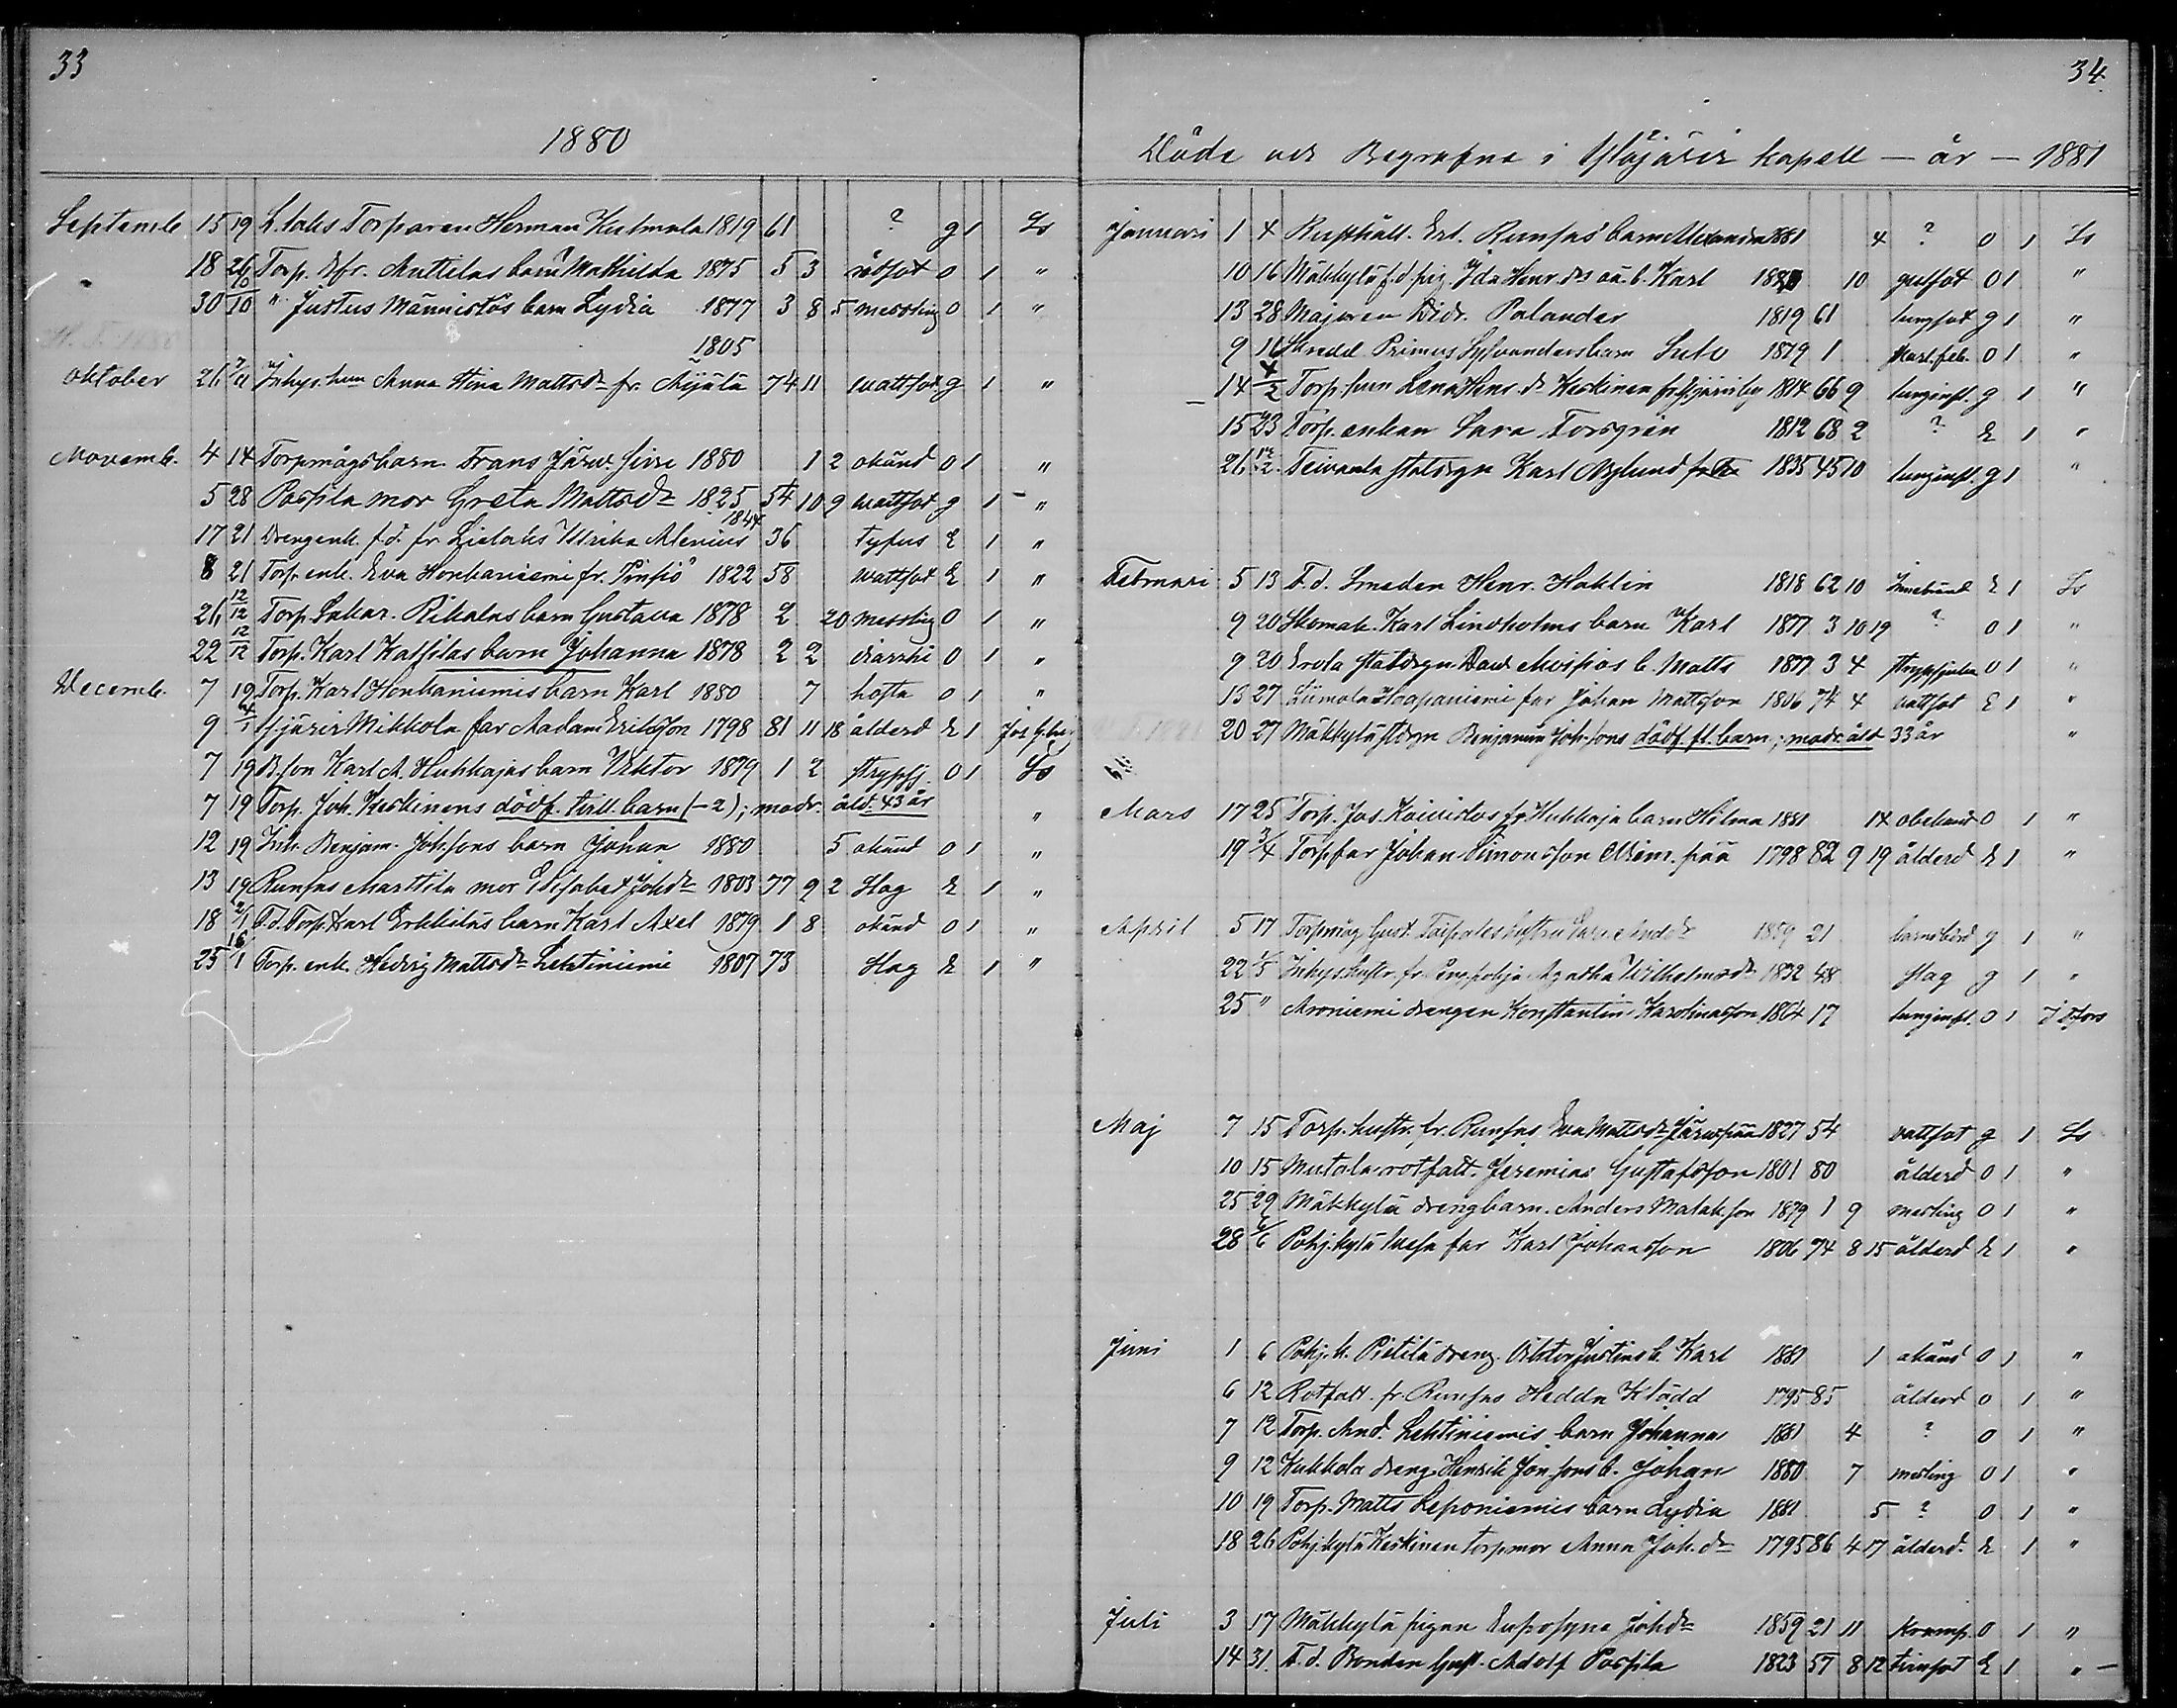 33
1880
Septemb. 15 19 L.laks Torparen Herman Kulmala 1819 61 ? g 1 Ls
18 26/10 Torp. Efr. Anttilas barn Mathilda 1875 5 3 rödsot 0 1 "
30 /10 " Justus Männistös barn Lydia 1877 3 8 5 messling 0 1 "
1805
Oktober 26 7/11 Inhys.hun Anna Stina Mattsdr fr. 74 11 wattsot g 1 "
Novemb. 4 14 Torpmågsbarn Frans Järv. 1880 1 2 okänd 0 1 "
5 28 Possila mor Greta Mattsdr 1825 54 10 9 wattsot g 1 "
1844
17 21 Drengenk. f.d. fr Lielaks Ulrika Alenius 36 tyfus E 1 "
8 21 Torp.enk. Eva Honkaniemi fr. Pinsiö 1822 58 wattsot E 1 "
26 12/12 Torp. Sakar. Rikalas barn Gustava 1878 2 20 messling 0 1 "
22 12/12 Torp. Karl Kassilas barn Johanna 1878 2 2 diarrhé 0 1 "
Decemb. 7 19 Torp. Karl Honkaniemis barn Karl 1880 7 hosta 0 1 "
9 6/1 Mikkola far Adam Eriksson 1798 81 11 18 ålderd E 1
7 19 B.son Karl A. Hukkajas barn Viktor 1879 1 2 strypsj. 0 1 Ls
7 19 Torp. Joh. Keskinens dödf. tvill. barn (-2); modr. åld. 43 år "
12 19 Inh. Benjam. Johssons barn Johan 1880 5 okänd 0 1 "
13 19 Runsas Marttila mor Elisabet Johdr 1803 77 9 2 Slag E 1 "
18 2/1 F.d. Torp. Karl Erkkiläs barn Karl Axel 1879 1 8 okänd 0 1 "
25 16/1 Torp. enk. Hedvig Mattsdr Lehtiniemi 1807 73 Slag E 1 "
34
Döde och Begrafne i Ylöjärvi kapell — år — 1881
Januari 1 4 Rusthåll. Erl. Runsas' barn Alexandra 1881 4 ? 0 1 Ls
10 16 Mäkkylä f.d. pig. Ida Henr.drs oä. b. Karl 10 gulsot 0 1 "
13 28 Majoren Didr. Polander 1819 61 lungsot g 1 "
9 16 Skredd. Primus Sylvanders barn 1879 1 0 1 "
14 /2 Torp.hun Lena Henr.dr Keskinen 1814 66 9 lunginfl. g 1 "
15 23 Torp.enkan Sara Forsgren 1812 68 2 ? E 1 "
26 12/2 Teivaala statdrgn Karl Asplund 1835 45 10 lunginfl. g 1 "
Februari 5 13 F.d. Smeden Henr. Hoklin 1818 62 10 E 1 Ls
9 20 Skomak. Karl Lindholms barn Karl 1877 3 10 19 ? 0 1 "
9 20 Erola statdrgn Dav. Moisios b. Matts 1877 3 4 strypsjukan 0 1 "
13 27 Liimola Haapaniemi far Johan Mattsson 1806 74 4 vattsot E 1 "
20 27 Mäkkylä stdrgn Benjamin Johssons dödf. fl.barn; modr. åld 33 år "
Mars 17 25 Torp. Jos. Koivistos fr Hukkaja barn Hilma 1881 14 obekand 0 1 "
19 3/4 Torpfar Johan Simonsson 1798 82 9 19 ålderd E 1 "
April 5 17 Torpmåg Gust. Taipales hustru 1859 21 barnsbörd g 1 "
22 1/5 Inhyshustr. fr. Agatha Wilhelmsdr 1832 48 slag g 1 "
25 " Aroniemi drengen Konstantin Karolinasson 1864 17 lunginfl. 0 1
Maj 7 15 Torp.hustr. fr. Runsas Eva Mattsdr Järvenpää 1827 54 vattsot g 1 Ls
10 15 Mutala rotfatt. Jeremias Gustafsson 1801 80 ålderd 0 1 "
25 29 Mäkkylä drengbarn. Anders Malak.son 1879 1 9 messling 0 1 "
28 6/6 Pohj.kylä far Karl Johansson 1806 74 8 15 ålderd E 1 "
Juni 1 6 Pohj.k. Pietilä dreng. Viktor Justins b. Karl 1881 1 okänd 0 1 "
6 12 Rotfatt. fr. Runsas Hedda Klädd 1795 85 ålderd 0 1 "
7 12 Torp. And. Lehtiniemis barn Johanna 1881 4 ? 0 1 "
9 12 Kukkola dreng Henrik Jonssons b. Johan 1880 7 messling 0 1 "
10 19 Torp. Matts Leponiemis barn Lydia 1881 5 ? 0 1 "
18 26 Pohj.kylä Keskinen torpmor Anna Joh.dr 1795 86 4 17 ålderd. E 1 "
Juli 3 17 Mäkkylä pigan Eufrosyne Johdr 1859 21 11 kramp. 0 1 "
14 31. F.d. Bonden Gust. Adolf Possila 1823 57 8 12 E 1 "